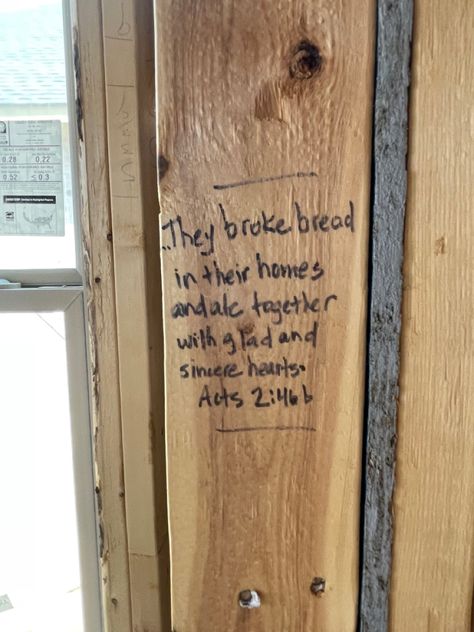 ..They broke bread
in their homes
and ate together
with glad and
sincere hearts.
Acts 2:46b
0.28 0.22
0.52 ≤0.3